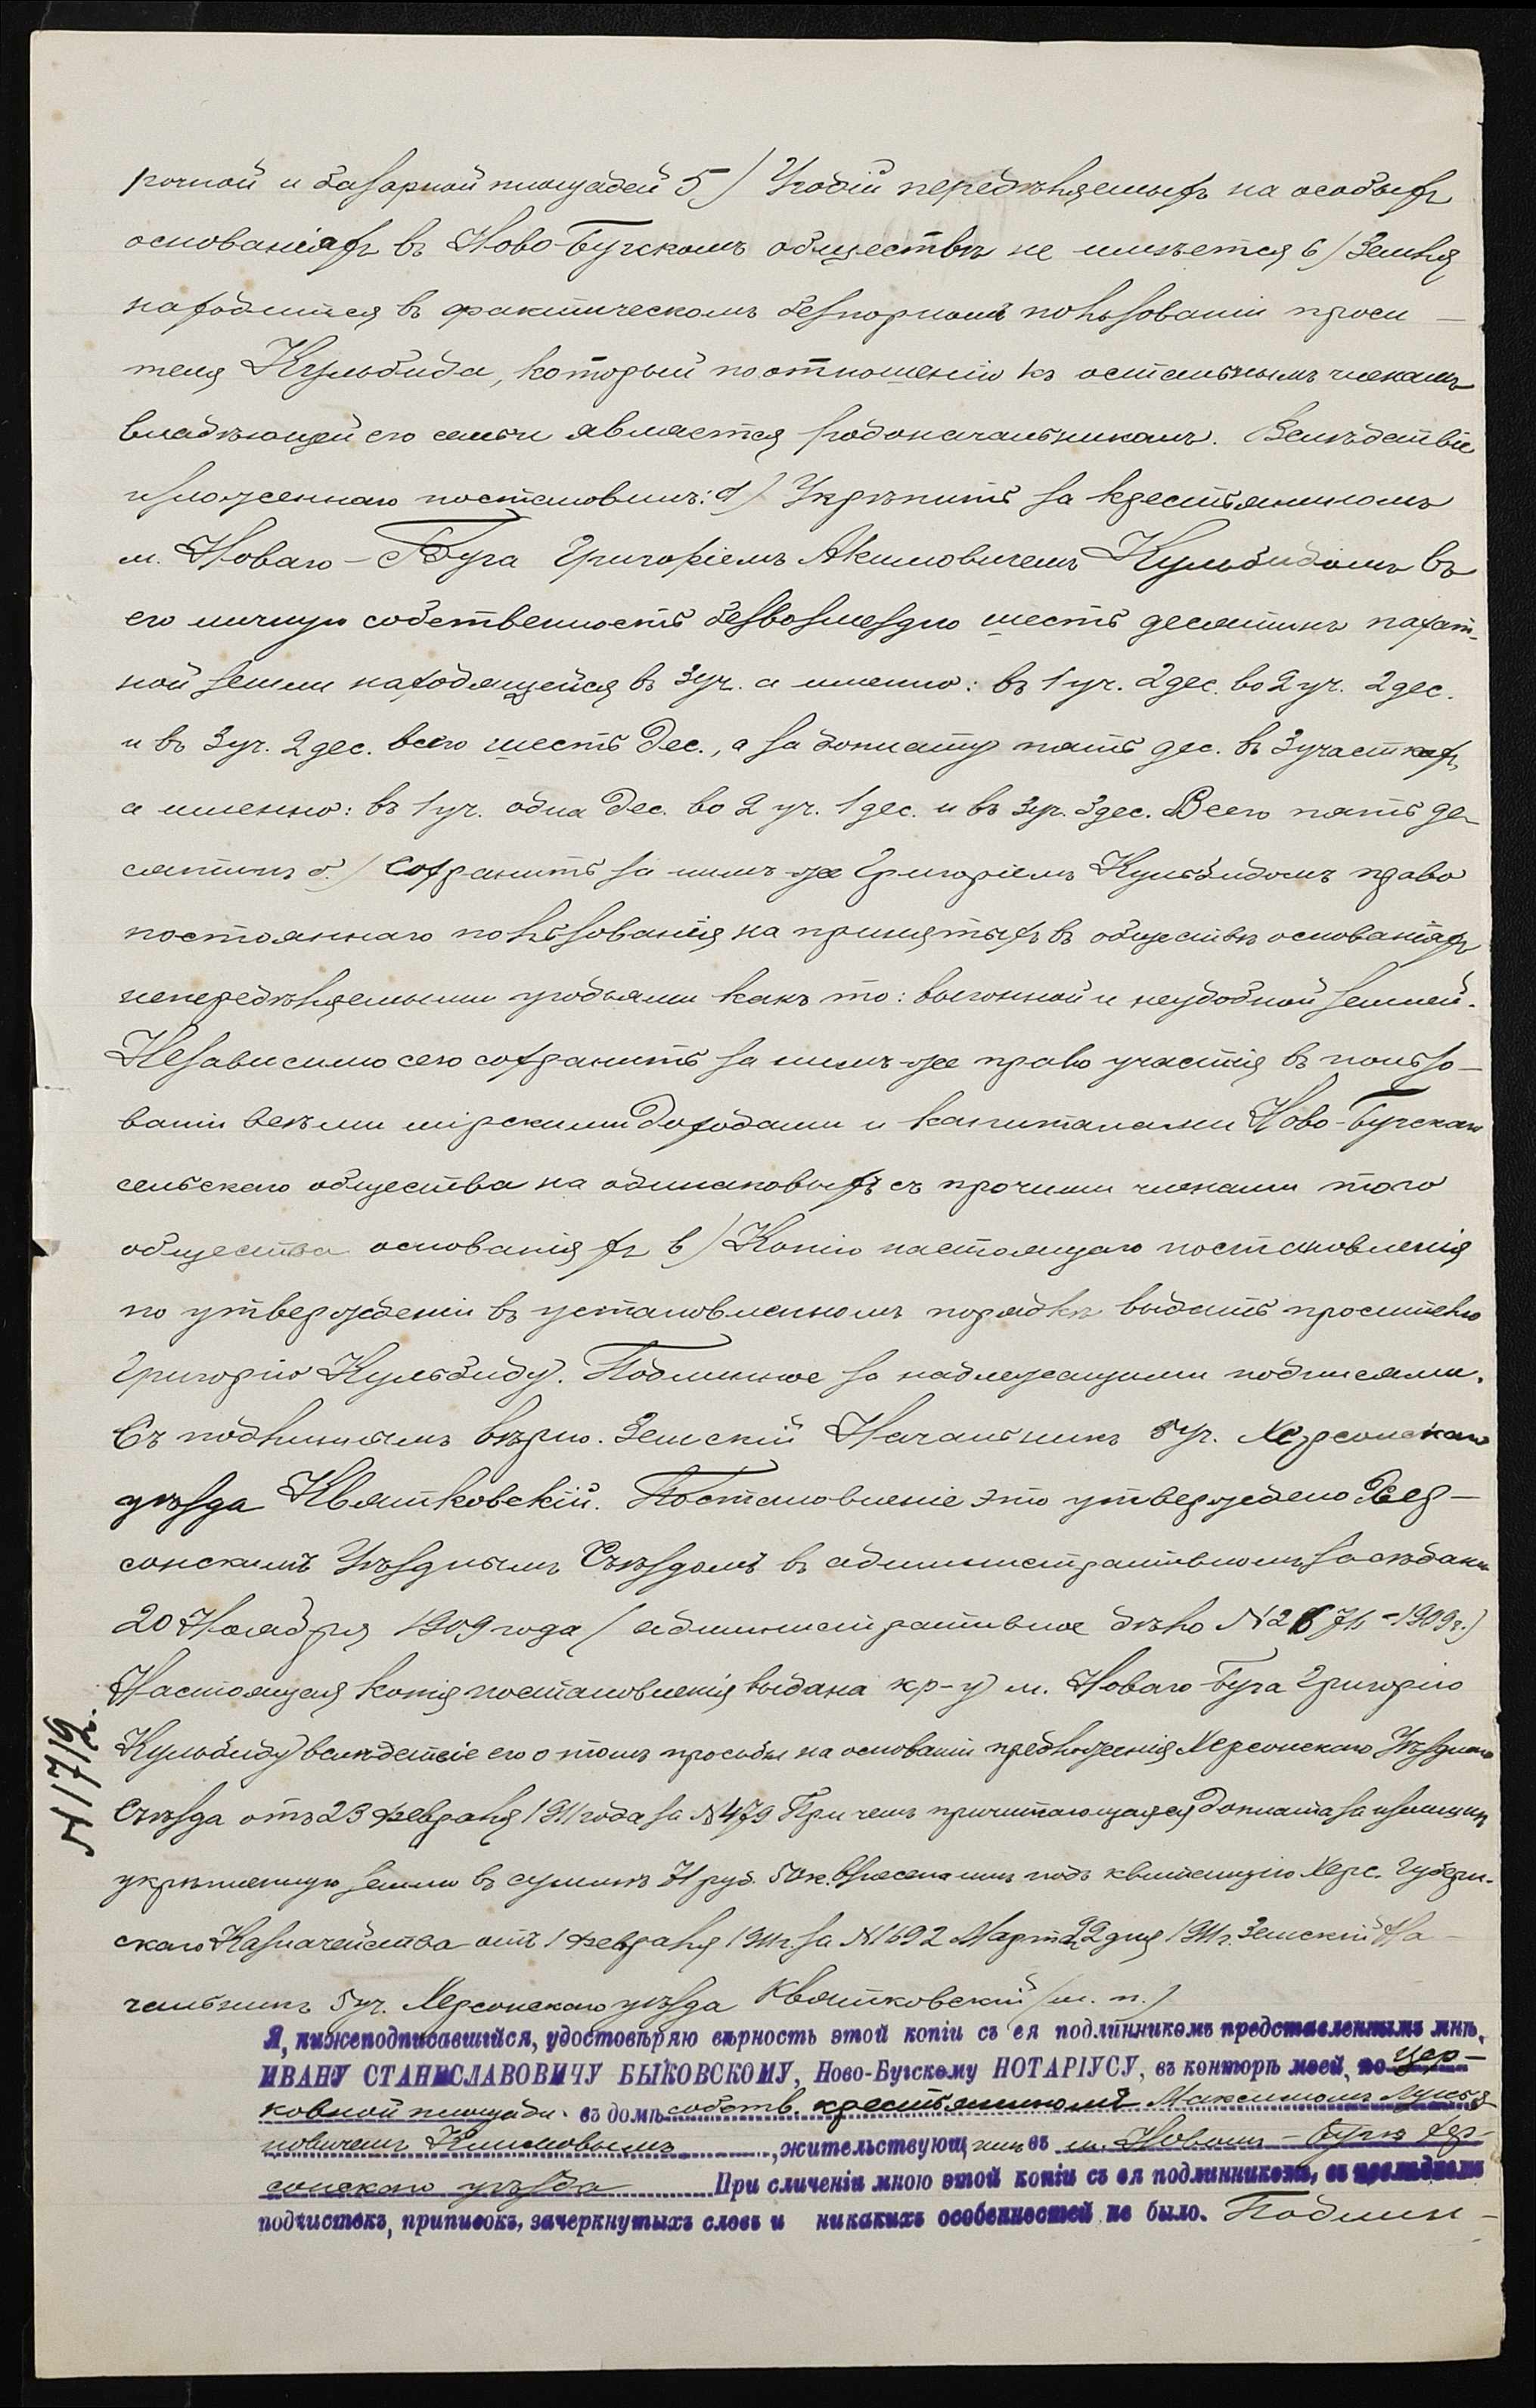 рочной и базарной площадей 5) Угодій передѣляемыхъ на особыхъ
основаніяхъ въ Ново-Бугскомъ обществѣ не имѣется 6) Земля
находится въ фактическомъ безспорномъ пользованіи проси-
теля Кульбида, который по отношенію къ остальнымъ членамъ
владѣющей его семьи является родоначальникомъ. Вслѣдствіе
изложеннаго постановилъ: а) Укрѣпить за крестьяниномъ
м. Новаго-Буга Григоріемъ Акимовичемъ Кульбидомъ въ
его личную собственность безвозмездно шесть десятинъ пахат-
ной земли находящейся въ 3 уч. а именно: въ 1 уч. 2 дес. во 2 уч. 2 дес.
и въ 3 уч. 2 дес. всего шесть дес., а за доплату пять дес. въ 3 участкахъ,
а именно: въ 1 уч. одна дес. во 2 уч. 1 дес. и въ 3 уч. 3 дес. Всего пять де-
сятинъ б.) Сохранить за нимъ-же Григоріемъ Кульбидомъ право
постояннаго пользованія на принятыхъ въ обществѣ основаніяхъ
непередѣляемыми угодьями какъ то: выгонной и неудобной землей.
Независимо сего сохранить за нимъ-же право участія въ пользо-
ваніи всѣми мірскими доходами и капиталами Ново-Бугскаго
сельскаго общества на одинаковыхъ съ прочими членами того
общества основанія хъ в) Копію настоящаго постановленія
по утвержденіи въ установленномъ порядкѣ выдать просителю
Григорію Кульбиду. Подлинное за надлежащими подписями.
Съ подлиннымъ вѣрно. Земскій Начальникъ 5 уч. Херсонскаго
уѣзда Квятковскій. Постановленіе это утверждено Хер-
сонскимъ Уѣзднымъ Съѣздомъ въ административномъ засѣданіи
20 Ноября 1909 года (административное дѣло №
Настоящая копія постановленія выдана кр-у м. Новаго-Буга Григорію
Кульбиду вслѣдствіе его о томъ просьбы на основаніи предложенія Херсонскаго Уѣзднаго
Съѣзда отъ 23 февраля 1911 года за № 479 При чемъ причитающаяся доплата за излишнѣ
укрѣпленную землю въ суммѣ руб. 50 к. внесена имъ подъ квитанцію Херс. Губерн-
скаго Казначейства отъ 1 февраля 1911 г. за № 1692 Марта 22 дня 1911 г. Земскій На-
чальникъ 5 уч. Херсонскаго уѣзда Квятковскій (м. п.)
№ 1712.
Я, нижеподписавшійся, удостовѣряю вѣрность этой копіи съ ея подлинникомъ представленнымъ мнѣ,
ИВАНУ СТАНИСЛАВОВИЧУ БЫКОВСКОМУ, Ново-Бугскому НОТАРІУСУ, въ конторѣ моей, по Цер-
ковной площади въ домѣ собств. крестьяниномъ Максимомъ
Климовымъ, жительствующимъ въ м. Новомъ-Бугѣ Хер-
сонскаго уѣзда При сличеніи мною этой копіи съ ея подлинникомъ, въ послѣднемъ
подчистокъ, приписокъ, зачеркнутыхъ словъ и никакихъ особенностей не было. Подлин-